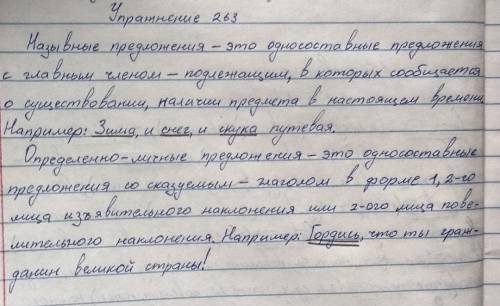 Упражнение 263
Назывные предложения – это односоставные предложения
с главным членом – подлежащим, в которых сообщается
о существовании, наличии предмета в настоящем времени.
Например: Зима, и снег, и скука путевая.
Определенно-личные предложения – это односоставные
предложения со сказуемым – глаголом в форме 1, 2-го
лица изъявительного наклонения или 2-ого лица пове-
лительного наклонения. Например: Гордись, что ты граж-
данин великой страны!